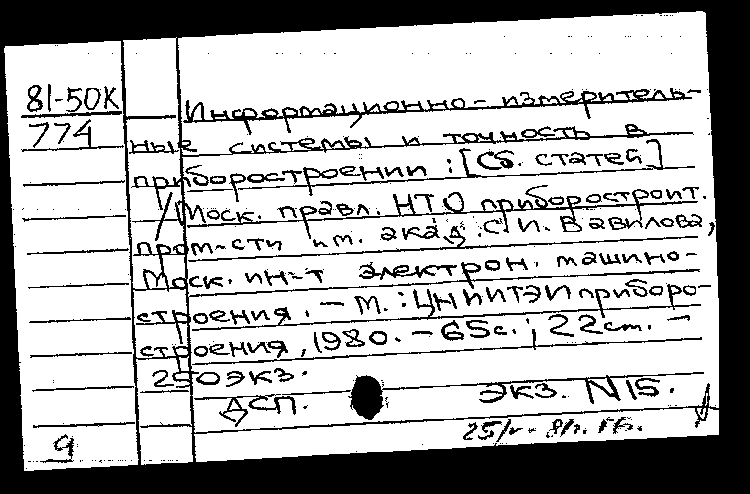 81-50К
774
Информационно-измеритель-
ные системы и точность в
приборостроении : [Сб. статей]
/ Моск. правл. НТО приборостроит.
пром-сти им. акад. С. И. Вавилова,
Моск. ин-т электрон. машино-
строения. – М. : ЦНИИТЭИ приборо-
строения, 1980. – 65 с. ; 22 см. –
250 экз.
ДСП. экз. N15.
9